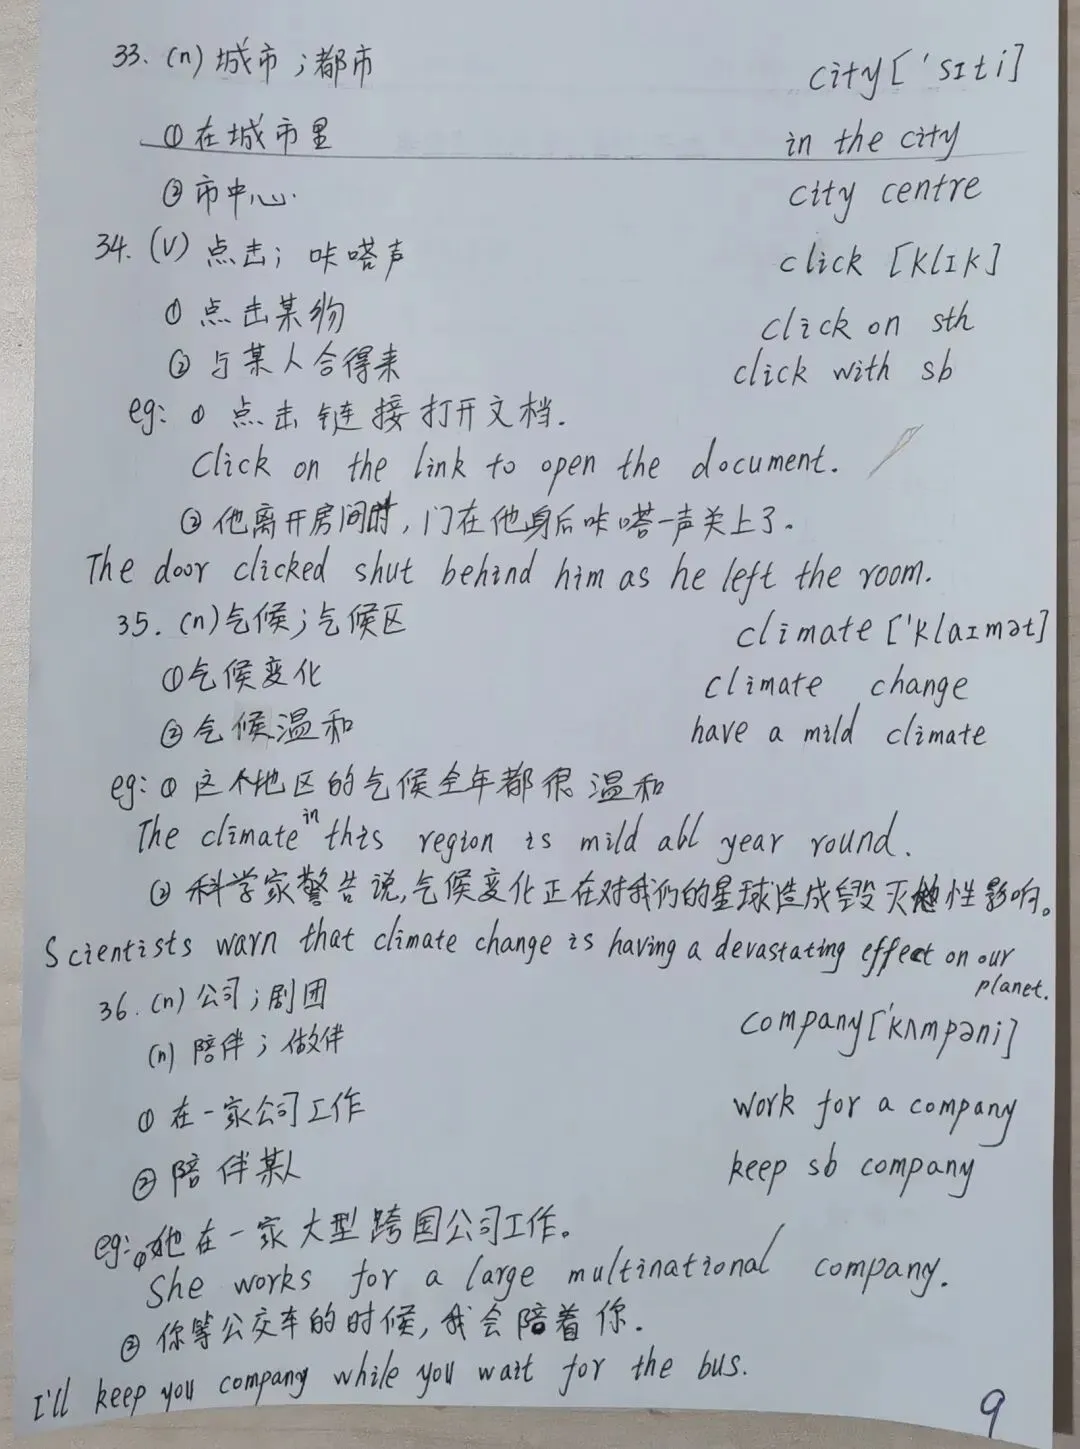 33. (n) 城市；都市 city ['sɪti]
① 在城市里 in the city
② 市中心. city centre
34. (V) 点击；咔嗒声 click [klɪk]
① 点击某物 click on sth
② 与某人合得来 click with sb
eg: ① 点击链接打开文档.
Click on the link to open the document.
② 他离开房间时，门在他身后咔嗒一声关上了.
The door clicked shut behind him as he left the room.
35. (n) 气候；气候区 climate ['klaɪmət]
① 气候变化 climate change
② 气候温和 have a mild climate
eg: ① 这个地区的气候全年都很温和
The climate in this region is mild all year round.
② 科学家警告说，气候变化正在对我们的星球造成毁灭性影响。
Scientists warn that climate change is having a devastating effect on our
planet.
36. (n) 公司；剧团 company ['kʌmpəni]
(n) 陪伴；做伴
① 在一家公司工作 work for a company
② 陪伴某人 keep sb company
eg: ① 她在一家大型跨国公司工作。
She works for a large multinational company.
② 你等公交车的时候，我会陪着你.
I'll keep you company while you wait for the bus.
9